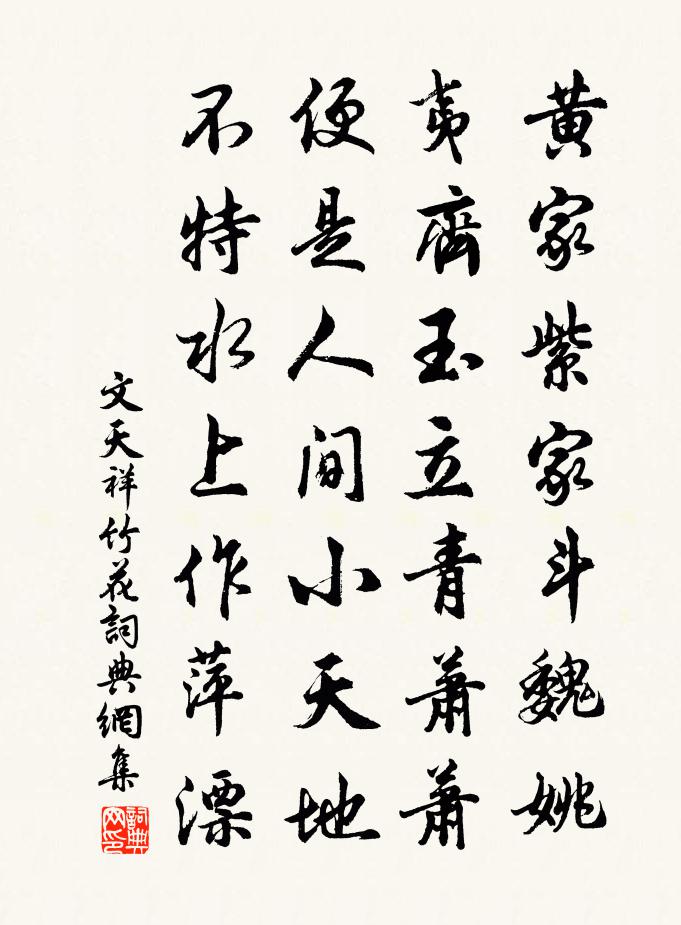 黄家紫家斗魏姚
夷齊玉立青蕭蕭
便是人间小天地
不特水上作萍漂
文天祥竹花詞典網集
詞典網印